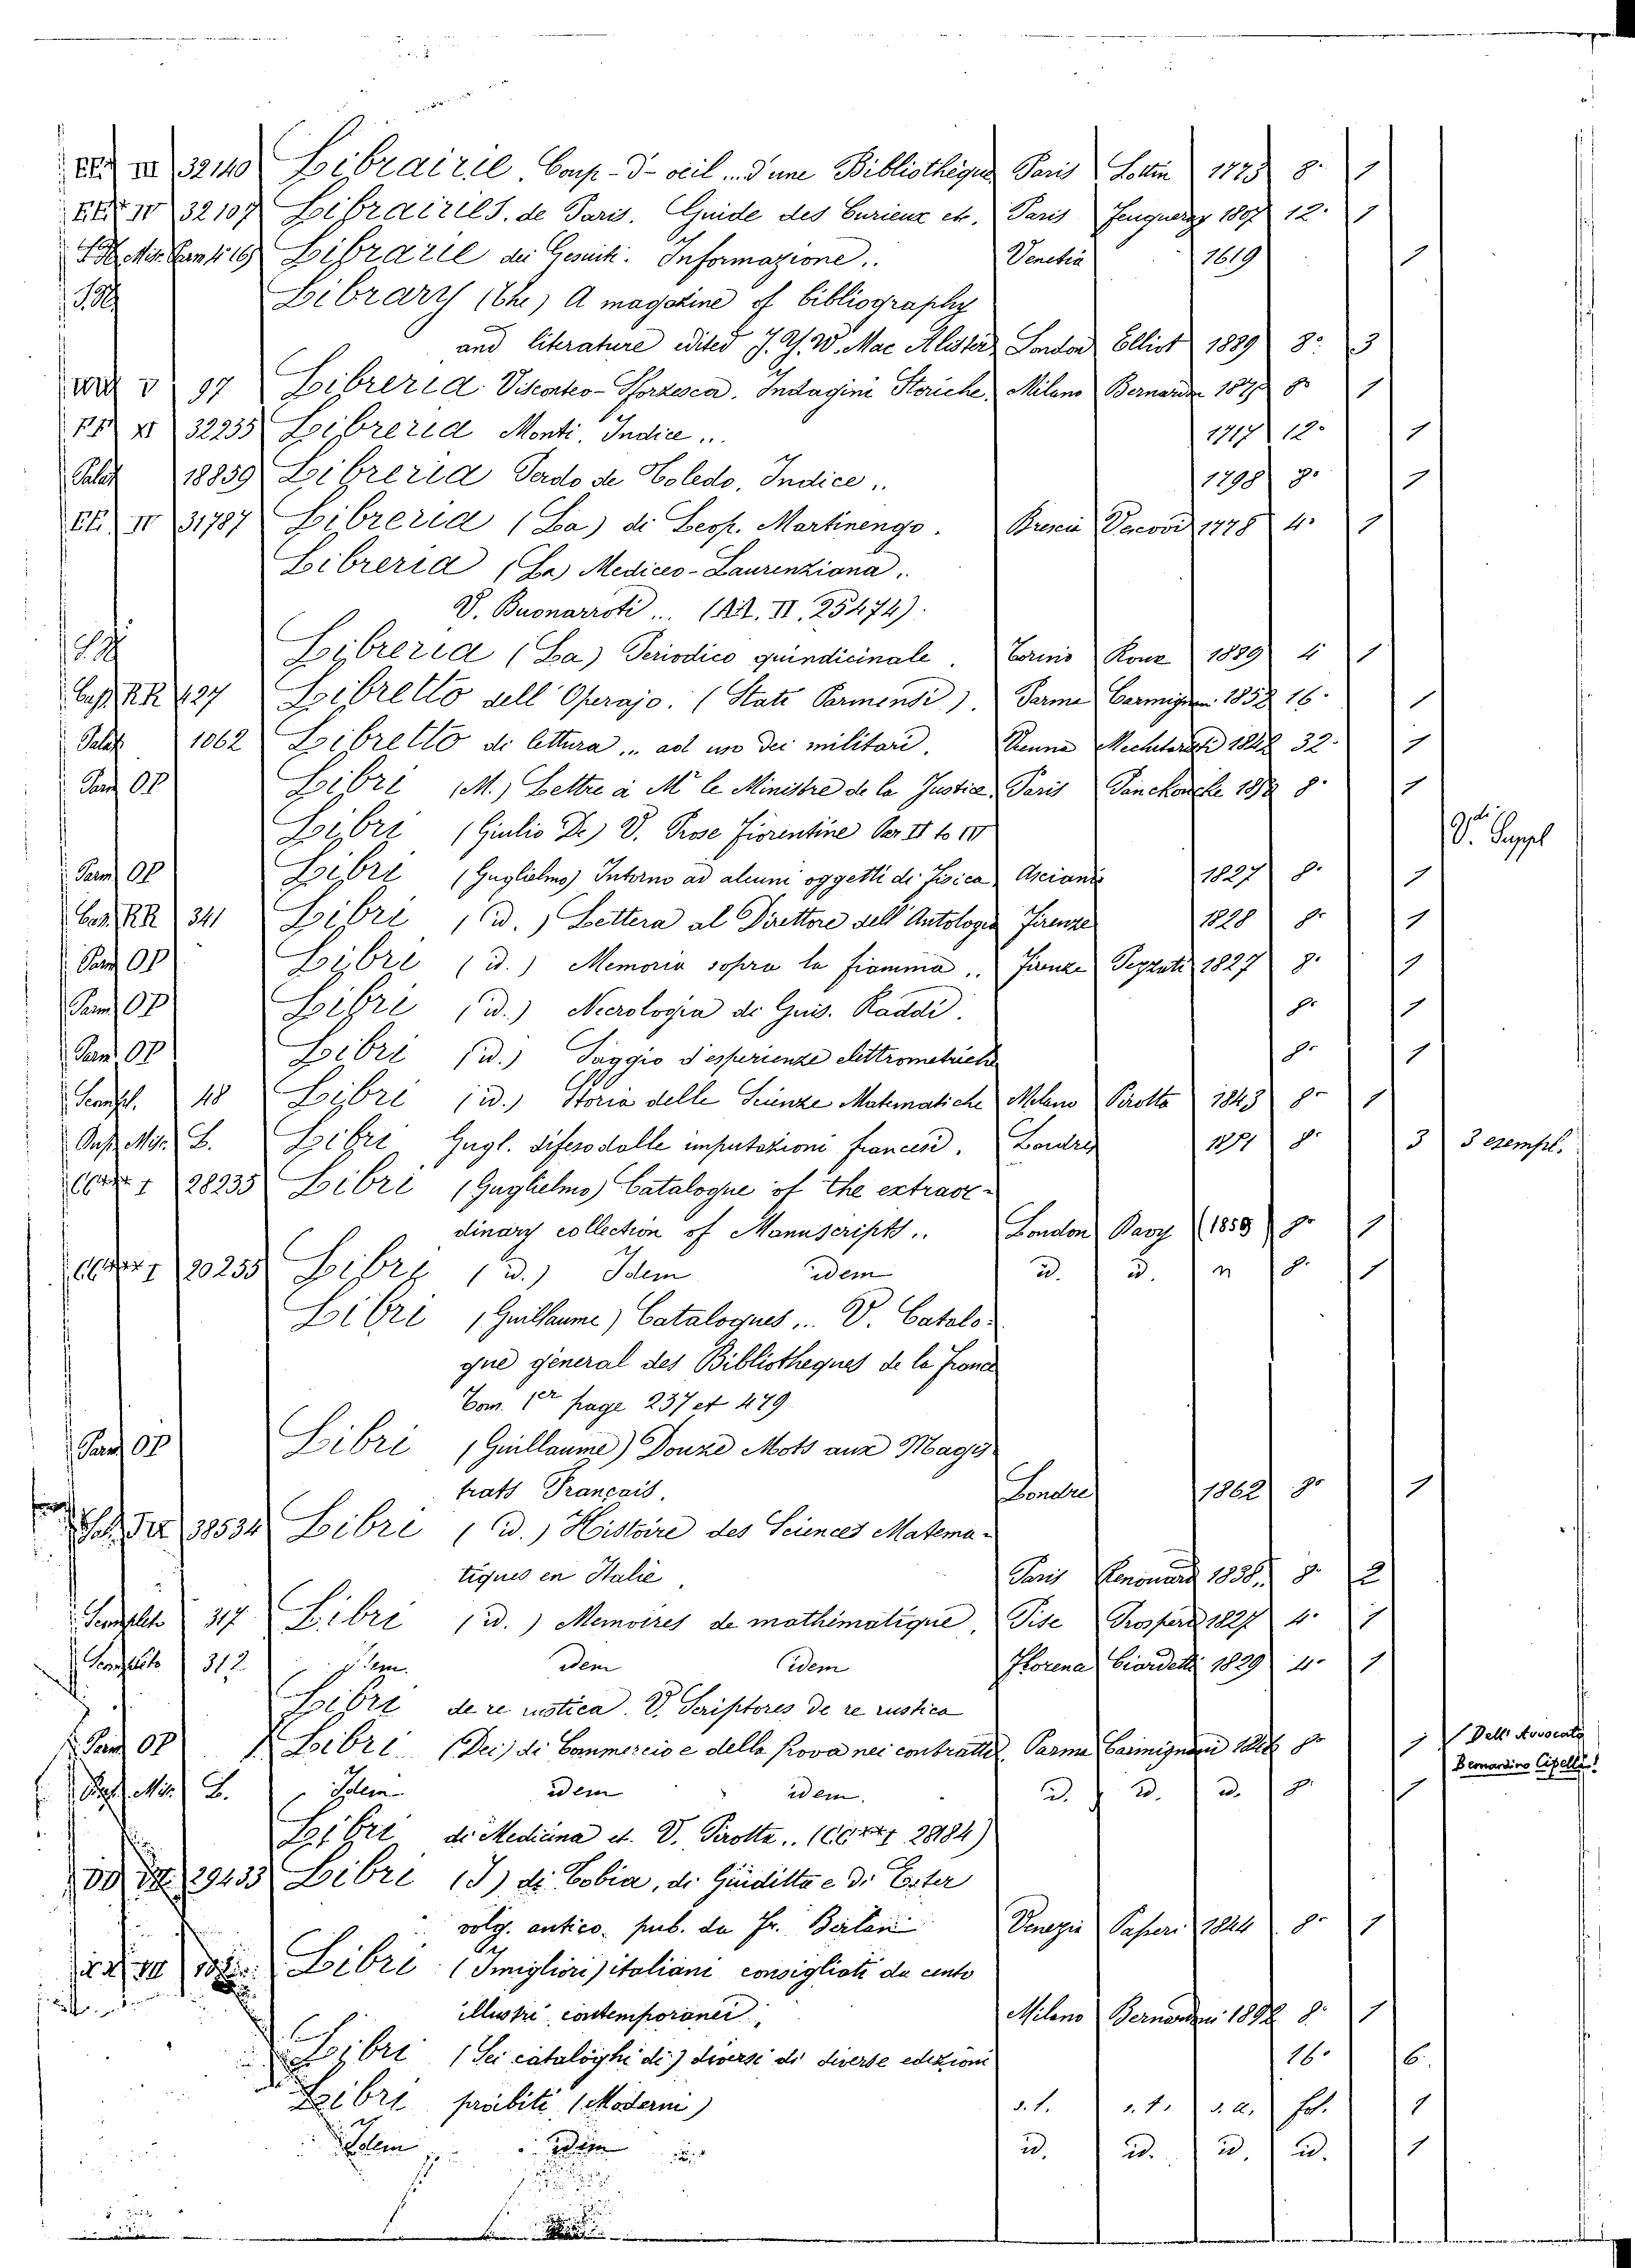 III 32140 Librairie. Coup-d-oeil... d'une Bibliothèque Paris Lottin 1773 8° 1
IV 32107 Libraires. de Paris. Guide des Curieux et. Paris 12° 1
Librarie dei Gesuiti. Informazione.. Venetia 1619 1
Library (The) A magazine of bibliography
and literature edited J. Y. W. Mac Alister London Elliot 1889 8° 3
V 97 Libreria Visconteo-Sforzesca. Indagini Storiche. Milano Bernardoni 8° 1
XI 32235 Libreria Monti. Indice... 1717 12° 1
Palat 18839 Libreria Pardo de Toledo, Indice.. 1798 8° 1
IV 31787 Libreria (La) di Leop. Martinengo. Brescia 1778 4° 1
Libreria (La) Mediceo-Laurenziana.
V. Buonarroti... (II. 25474).
Libreria (La) Periodico quindicinale. Torino Roux 1889 4 1
RR 427 Libretto dell'Operajo. (Stati Parmensi). Parma Carmignani 1858 16° 1
Palat 1062 Libretto di lettura... ad uso dei militari. Vienna 32° 1
Parm OP Libri (M.) Lettre à Mr le Ministre de la Justice. Paris Panckoucke 8° 1
Libri (Giulio De) V. Prose Fiorentine Par II to IV V. Suppl
Parm OP Libri (Guglielmo) Intorno ad alcuni oggetti di Fisica 1827 8° 1
RR 341 Libri (id.) Lettera al Direttore dell'Antologia Firenze 1828 8° 1
Parm OP Libri (id.) Memoria sopra la fiamma.. Firenze Pezzati 1827 8° 1
Parm OP Libri (id.) Necrologia di Gius. Raddi. 8° 1
Parm OP Libri (id.) Saggio d'esperienze elettrometriche 8° 1
48 Libri (id.) Storia delle Scienze Matematiche Milano Pirotta 1843 8° 1
Misc. B. Libri Gugl. difeso dalle imputazioni francesi. Londres 8° 3 3 esempl.
I 28235 Libri (Guglielmo) Catalogue of the extraor-
dinary collection of Manuscripts.. London Davy (1859) 8° 1
I 20255 Libri (id.) Idem idem id. id. n 8° 1
Libri (Guillaume) Catalogues... V. Catalo-
gue général des Bibliotheques de la France
Tom. 1er page 237 et 479
Parm OP Libri (Guillaume) Douze Mots aux Magis-
trats Français. Londres 1862 8° 1
38534 Libri (id.) Histoire des Sciences Matema-
tiques en Italie Paris Renouard 1838. 8° 2
317 Libri (id.) Memoires de mathématique, Pise Prosperi 1827 4° 1
312 Idem. idem idem Florence Ciardetti 1829 4° 1
Libri de re rustica. V. Scriptores de re rustica
Parm OP Libri (Dei) di Commercio e della prova nei contratti. Parma Carmignani 8° 1 (Dell'Avvocato
Bernardino Cipelli)
Misc. B. Idem idem idem. id. id. id. 8° 1
Libri di Medicina et. V. Pirotta.. (28184)
29433 Libri (I) di Tobia, di Giuditta e di Ester
volg. antico. pub. da Fr. Berlan Venezia 1844 8° 1
Libri (I migliori) italiani consigliati da cento
illustri contemporanei. Milano Bernardoni 1892 8° 1
Libri (Sei cataloghi di) diversi di diverse edizioni 16° 6.
Libri proibiti (Moderni) s. l. s. t. s. a. fol. 1
Idem idem id. id. id. id. 1